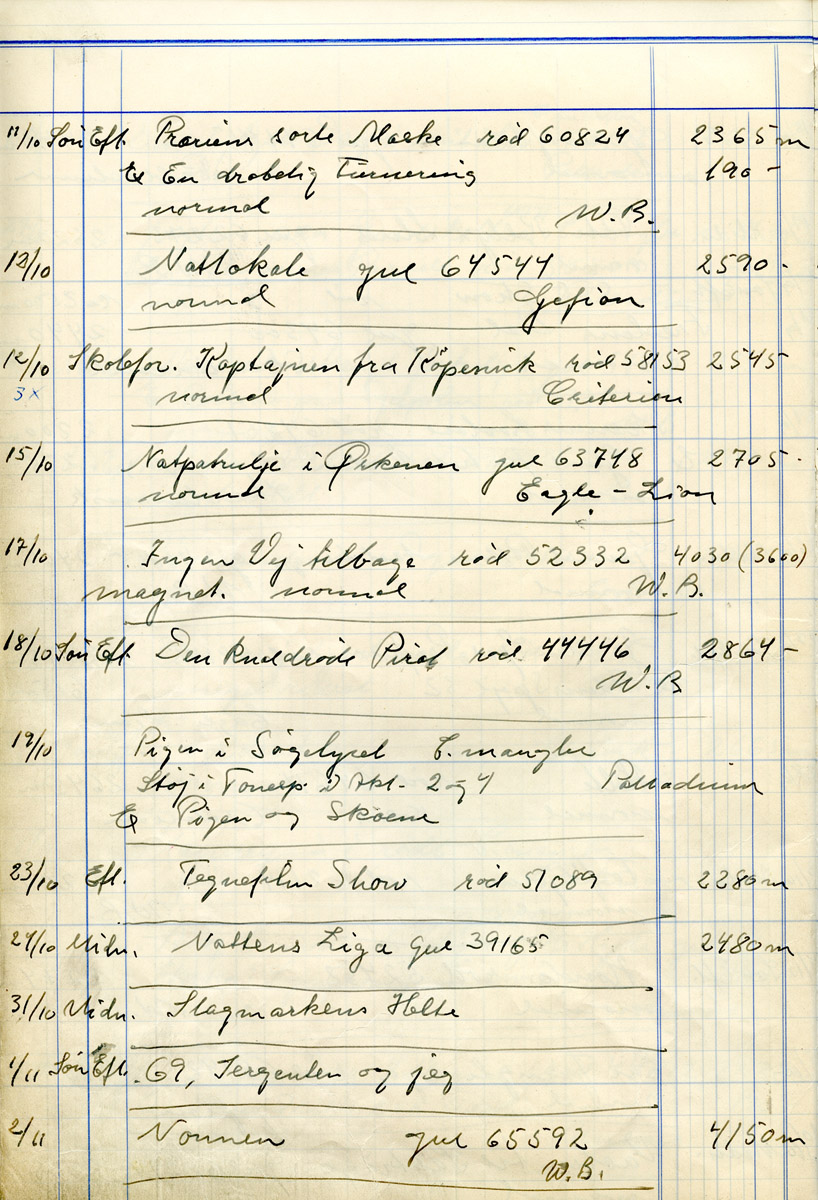 11/10 Søn Eft. Præriens sorte Maske rød 60824 2365 m
Ex En drabelig Turnering 190 -
normal W.B.
12/10 Natlokale gul 64544 2590 -
normal Gefion
12/10 Skolefor. Kaptajnen fra Köpenick rød 58153 2545
3x normal Criterion
15/10 Natpatrulje i Ørkenen gul 63748 2705 -
normal Eagle - Lion
17/10 Ingen Vej tilbage rød 52332 4030 (3600)
magnet. normal W.B.
18/10 Søn Eft. Den knaldrøde Pirat rød 44446 2864 -
W.B
19/10 Pigen i Søgelyset C. mangler
Støj i Tonesp. i Akt. 2 og 4 Palladium
Ex Pigen og Skoene
23/10 Eft. Tegnefilm Show rød 51089 2280 m
24/10 Midn. Nattens Liga gul 39165 2480 m
31/10 Midn. Slagmarkens Helte
1/11 Søn Eft. 69, Sergenten og jeg
2/11 Nonnen gul 65592 4150 m
W.B.